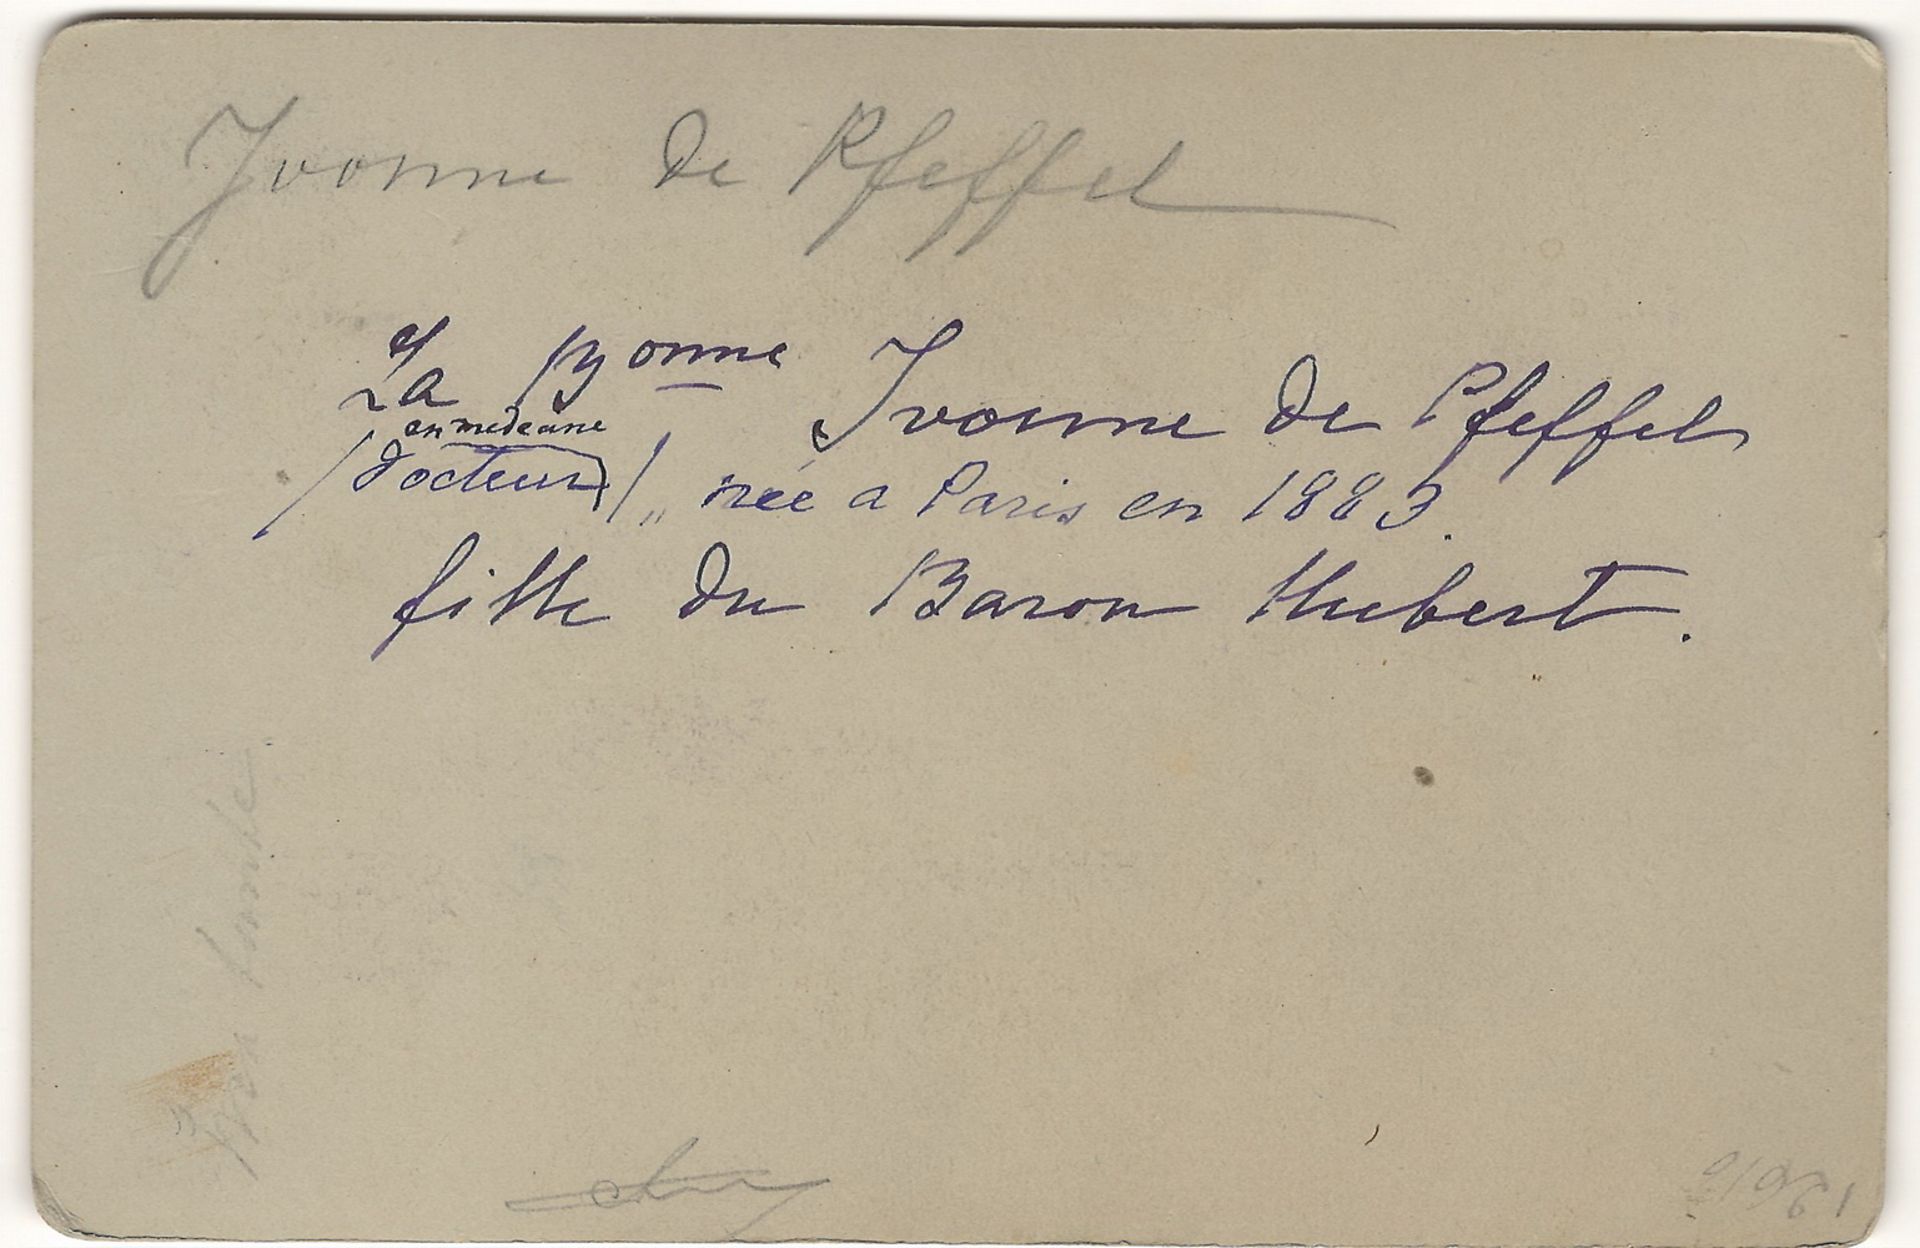 Yvonne de Pfeffel
La Bonne Yvonne de Pfeffel
en medecine
(docteur) „ née a Paris en 1883.
fille du Baron Hubert.